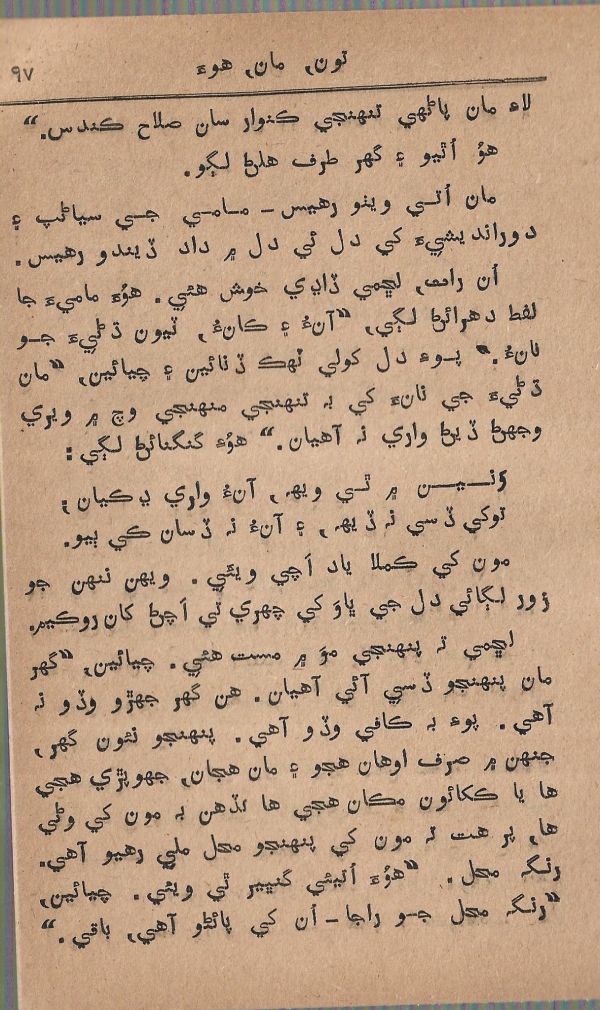 تون, مان, هوءَ
٩٧
لاءِ مان پاڻهي تنهنجي ڪنوار سان صلاح ڪندس.“
هوُ اُٿيو ۽ گهر طرف هلڻ لڳو.
مان اُتي ويٺو رهيس – مامي جي سياڻپ ۽
دورانديشيءَ کي دل ئي دل ۾ داد ڏيندو رهيس.
اُن رات, لڇمي ڏاڍي خوش هئي. هوُءَ ماميءَ جا
لفظ دهرائڻ لڳي, ”آنءُ ۽ ڪانءُ, ٽيون ڌڻيءَ جو
نانءُ.“ پوءِ دل کولي ٽهڪ ڏنائين ۽ چيائين, ”مان
ڌڻيءَ جي نانءَ کي بہ تنهنجي منهنجي وچ ۾ ويري
وجهڻ ڏيڻ واري نہ آهيان.“ هوُءَ گنگنائڻ لڳي:
نيڻن ۾ ٿي ويهہ, آنءُ واري ڍڪيان;
توکي ڏسي نہ ڏيهہ, ۽ آنءُ نہ ڏسان ڪي ٻيو.
مون کي ڪملا ياد اَچي ويئي. ويهن ننهن جو
زور لڳائي دل جي ڀاوَ کي چهري تي اَچڻ کان روڪيم.
لڇمي تہ پنهنجي موَ ۾ مست هئي. چيائين, ”گهر
مان پنهنجو ڏسي آئي آهيان. هن گهر جهڙو وڏو نہ
آهي. پوءِ بہ ڪافي وڏو آهي. پنهنجو نئون گهر,
جنهن ۾ صرف اوهان هجو ۽ مان هجان, جهوپڙي هجي
ها يا ڪکائون مڪان هجي ها تڏهن بہ مون کي وڻي
ها, پر هت تہ مون کي پنهنجو محل ملي رهيو آهي.
رنگ محل. ”هوُءَ اُتيئي گنڀير ٿي ويئي. چيائين,
”رنگ محل جو راجا – اُن کي پائڻو آهي, باقي.“